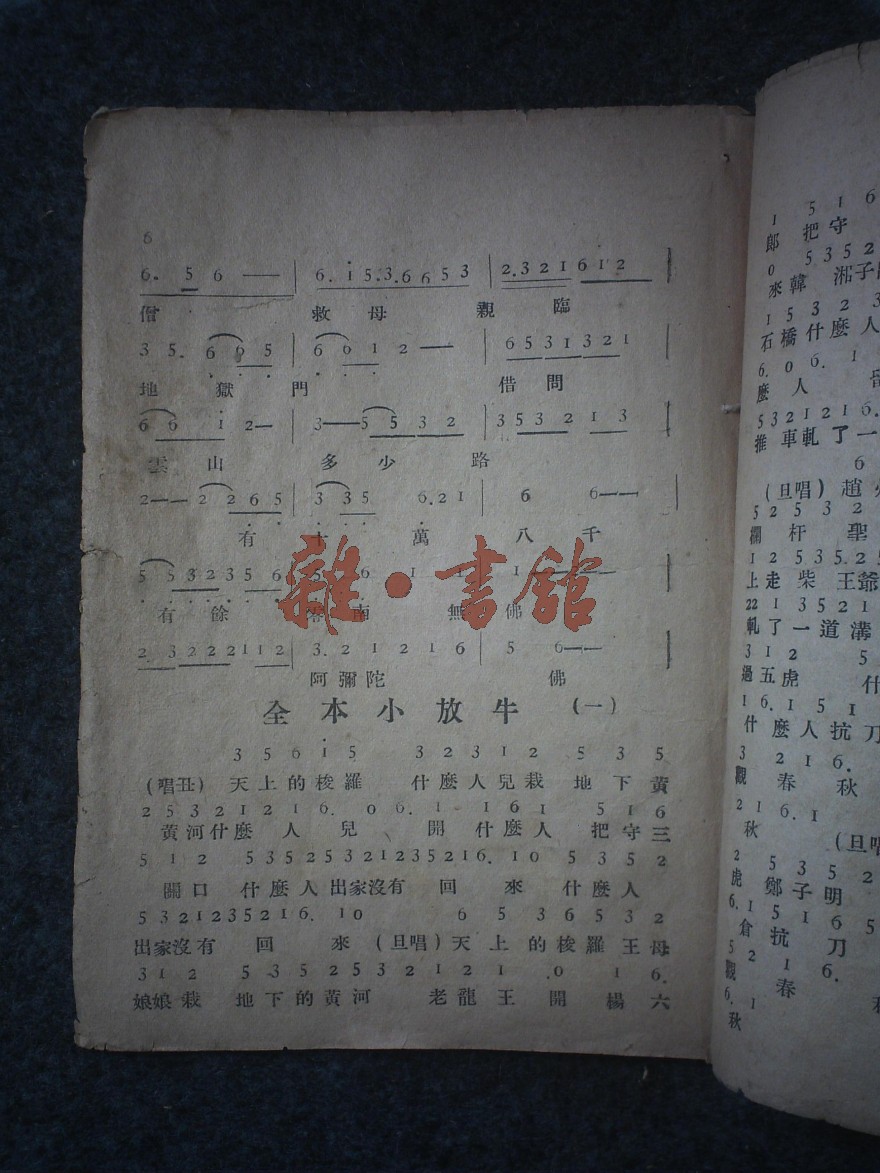 6
6. 5 6 —— | 6. i 5. 3. 6 6 5 3 | 2. 3 2 1 6 1 2
僧 救 母 親 臨
3 5. 6 0 5 | 6 0 1 2 —— | 6 5 3 1 3 2 1
地 獄 門 借 問
6 6 i 2 — | 3 — 5 5 3 2 | 3 5 3 2 1 3
雲 山 多 少 路
2 —— 2 2 6 5 | 3 3 5 6. 2 1 | 6 6 ——
有 十 萬 八 千
5 5 3 2 3 5 6
有 餘 零 南 無 佛
2 3 2 2 2 1 1 2 | 3. 2 1 2 1 6 | 5 6 ——
阿 彌 陀 佛
全本小放牛 (一)
3 5 6 i 5 3 2 3 1 2 3 3 5
(丑唱) 天上的梭羅 什麼人兒栽 地下黃
2 5 3 2 1 2 1 6. 0 6. 1 1 6 1 5 1 6
黃河什麼 人 兒 開 什麼人 把守三
5 1 2 5 3 5 2 5 3 2 1 2 3 5 2 1 6. 1 0 5 3 5 2
關口 什麼人出家沒有 回 來 什麼人
5 3 2 1 2 3 5 2 1 6. 1 0 6 5 3 6 5 3 2
出家沒有 回 來 (旦唱) 天上的梭羅王母
3 1 2 5 3 5 2 5 3 2 1 2 1 .0 1 6.
娘娘栽 地下的黃河 老龍王開 楊六
1 5 1 6
郎 把守
0 5 3 5 2
來韓 湘子
1 5 3 2 3
石橋什麼人
6. 0 6. 1
麼 人
5 3 2 1 2 1 6.
推車軋了一
6
(旦唱) 趙
5 2 5 3 2
欄杆 聖
1 2 5 3 5 .
上走柴王爺
22 1 3 5 2 1
軋了一道溝
3 1 2 5
過五虎 什
1 6. 1 5 1
什麼人抗刀
3 2 1 6.
觀 春 秋
2 1 6. 1
秋
(旦唱
2 5 3 5 2
虎 鄭子明
6. 1 5 1 6
倉 抗 刀
5 2 1 6.
觀 春
6. 1
秋
雜·書館